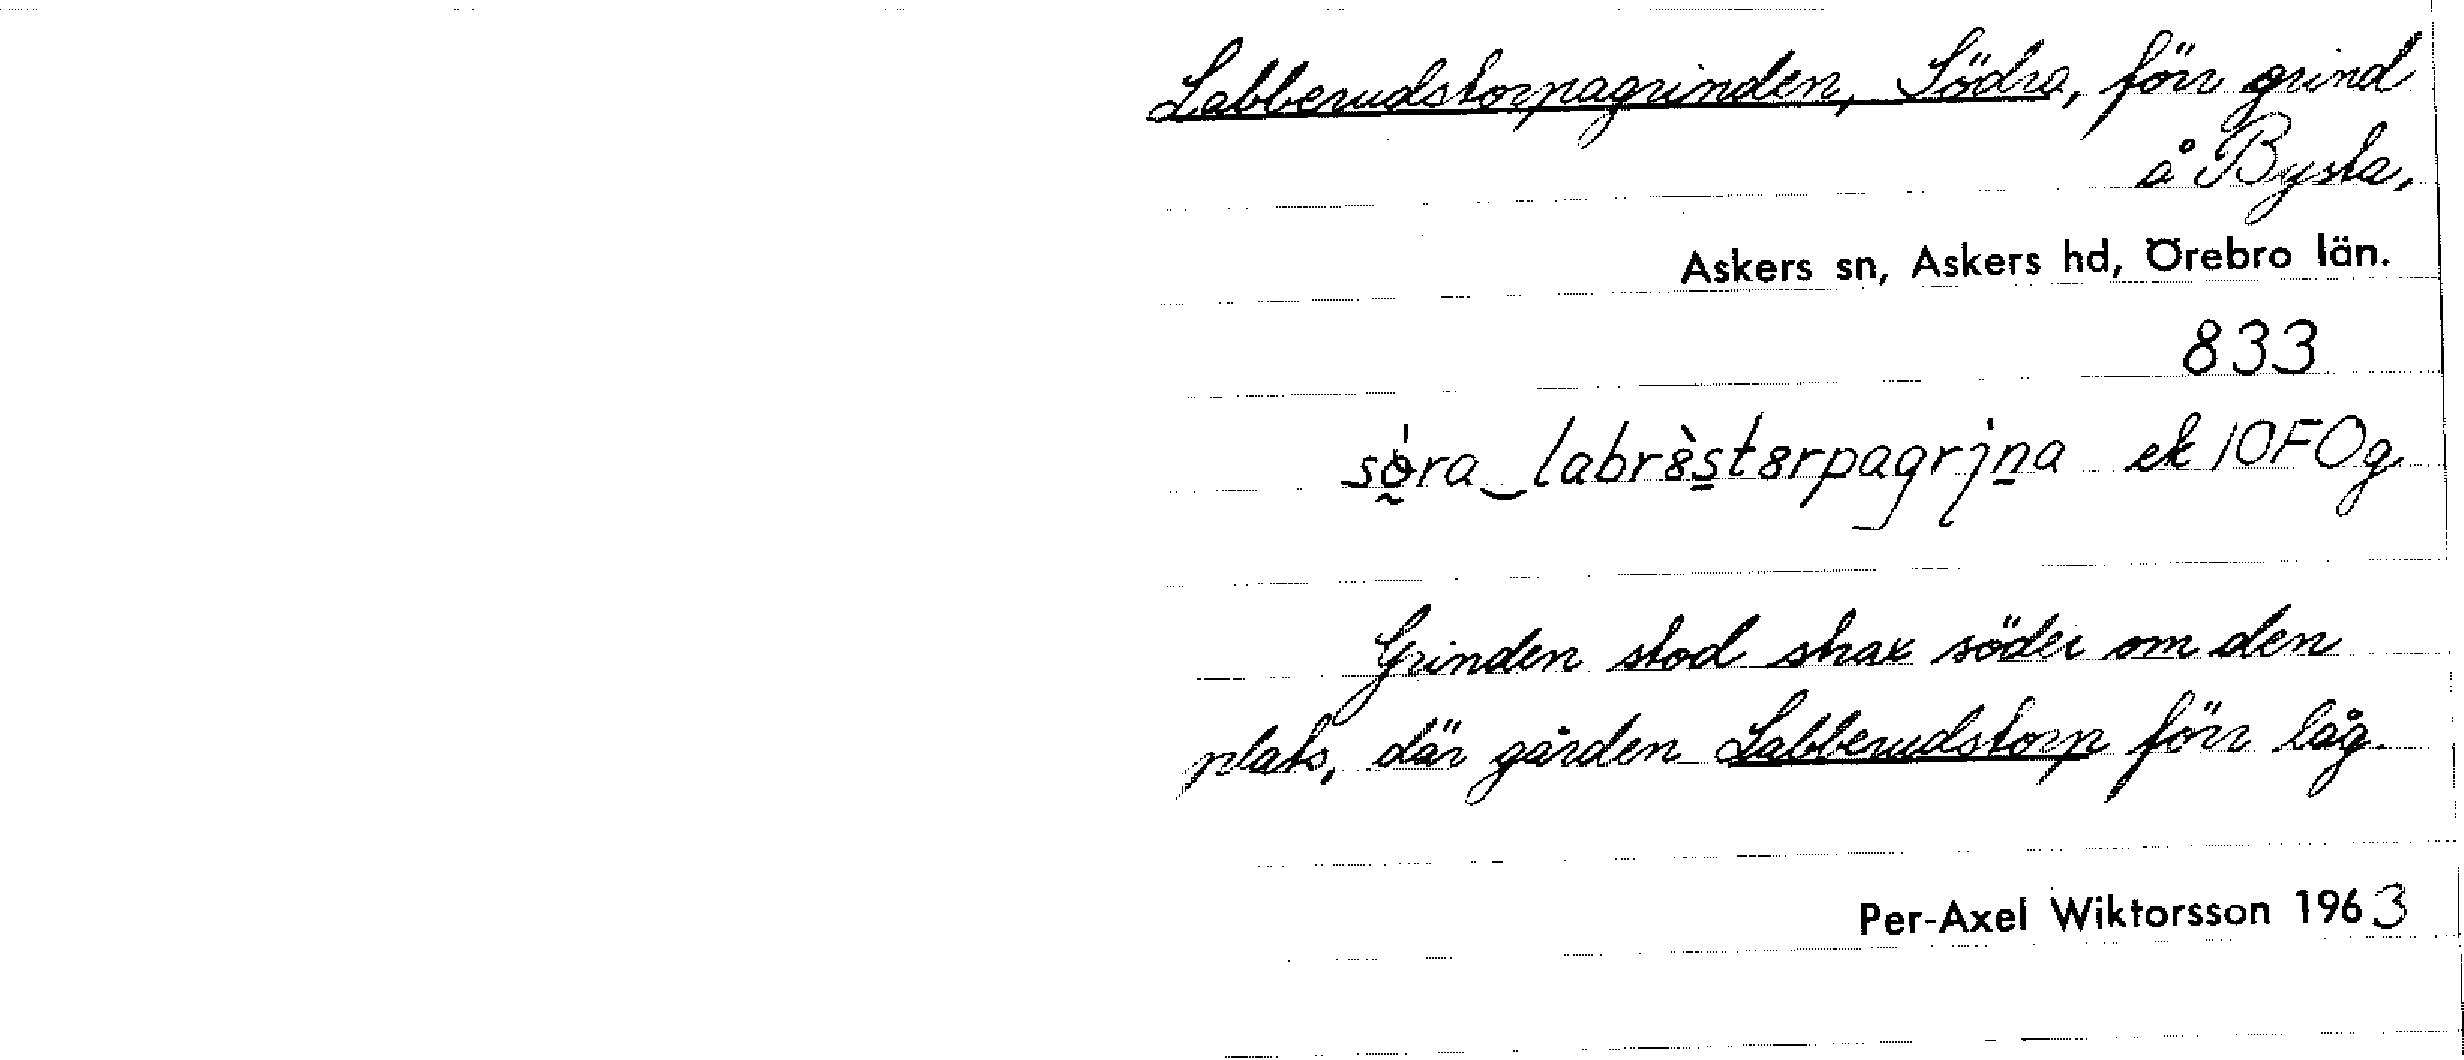 Labberudstorpagrinden, Södra, förr grind
å Bysta,
Askers sn, Askers hd, Örebro län.
833
ek 10FOg
Grinden stod strax söder om den
plats, där gården Labberudstorp förr låg.
Per-Axel Wiktorsson 1963